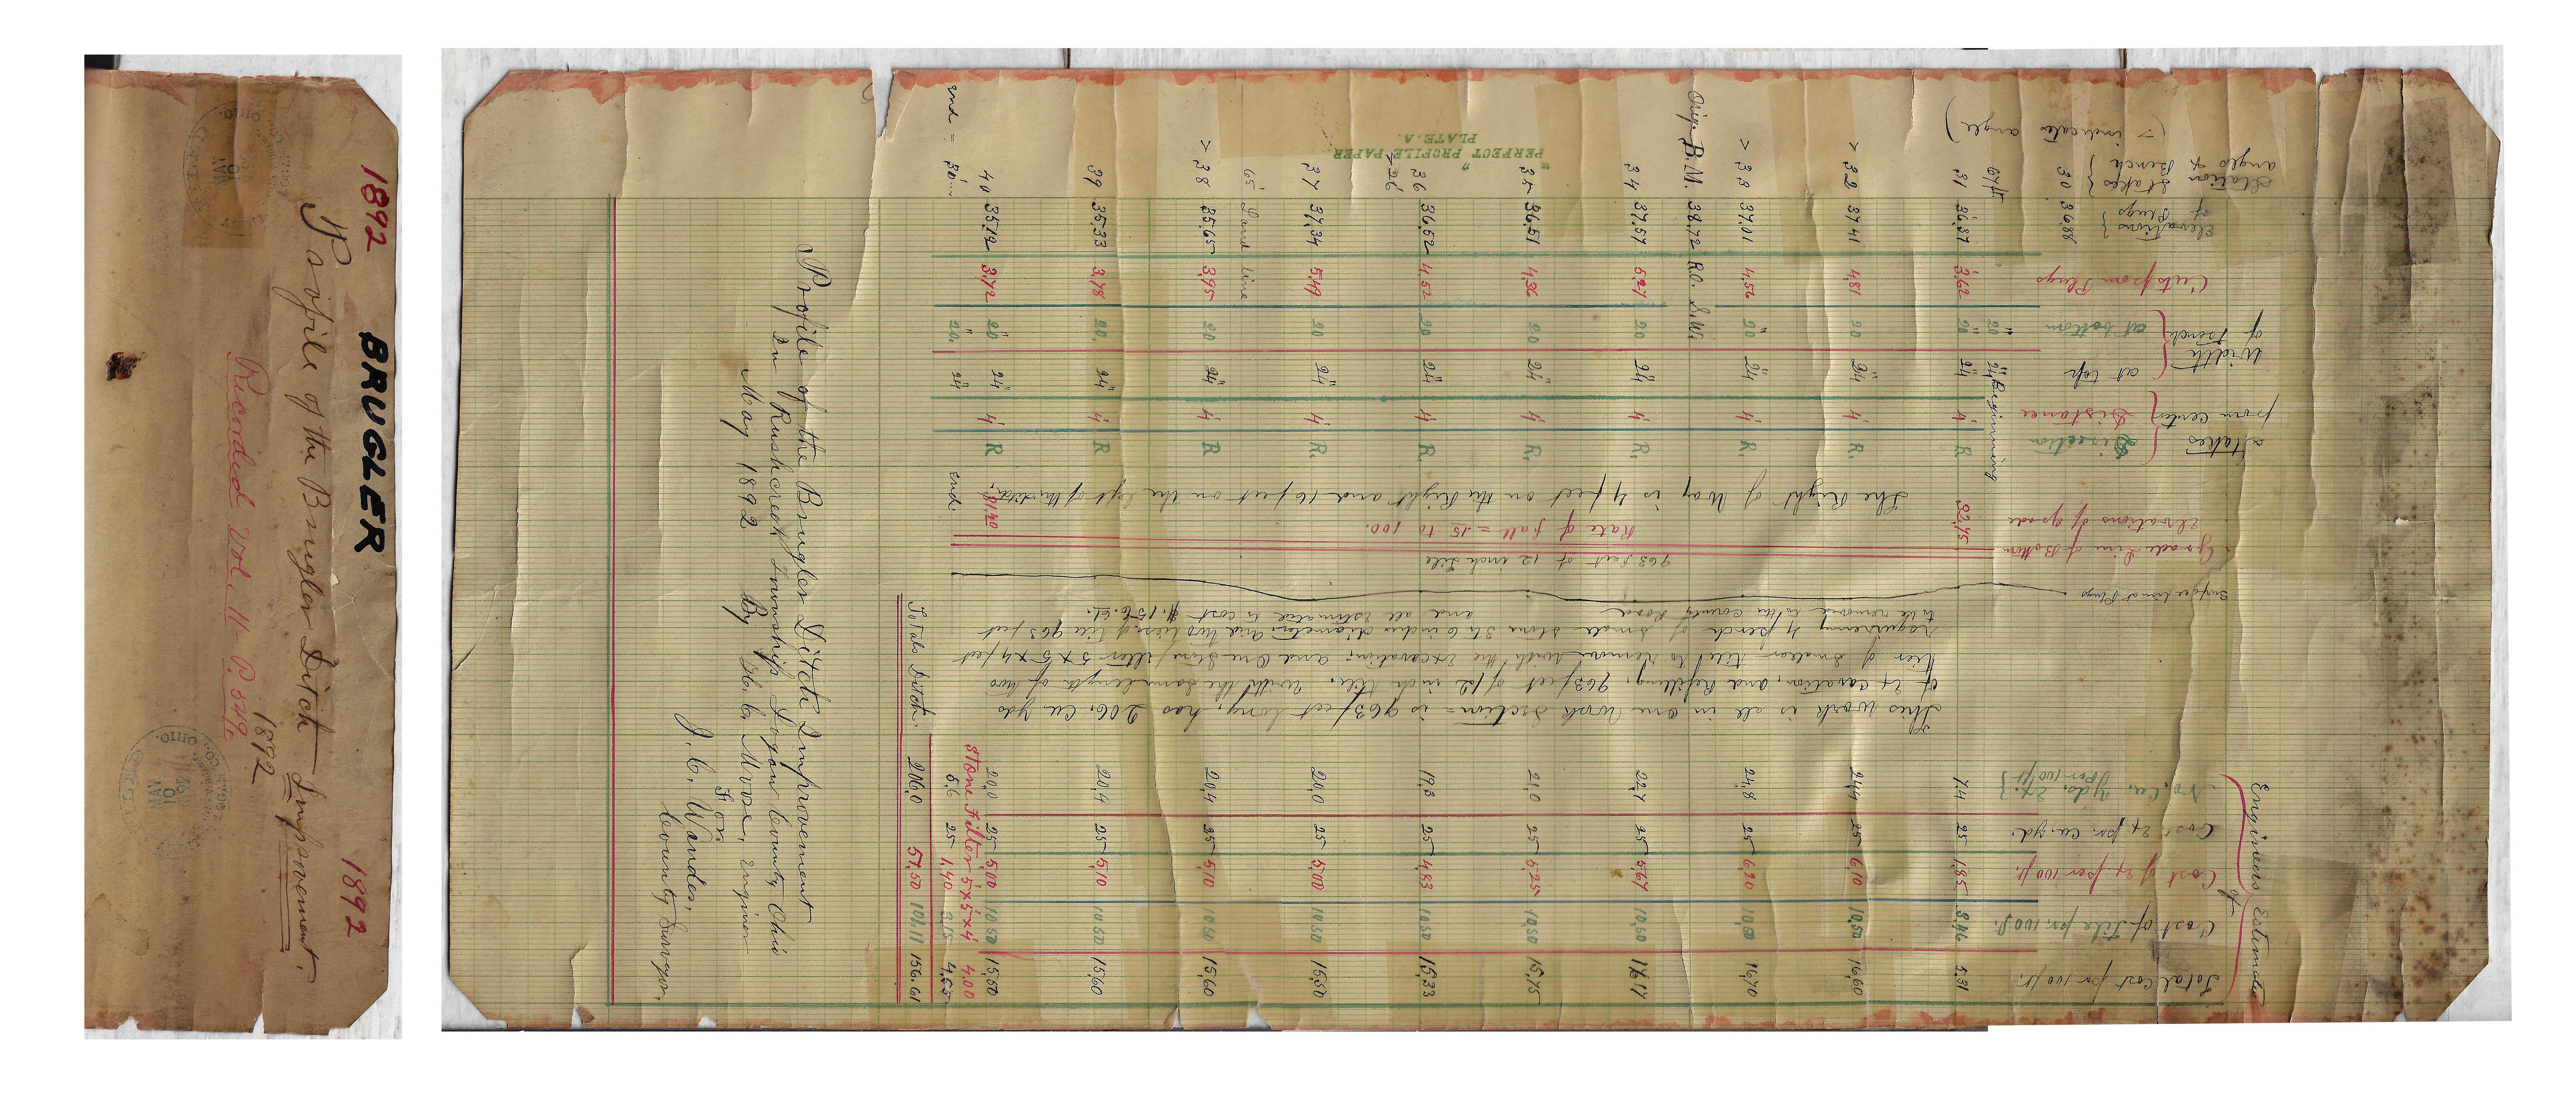 1892
BRUGLER
1892
Profile of the Brugler Ditch Improvement.
1892
Recorded Vol. 11- P. 549.
FILED
MAY
10
OHIO.
FILED
MAY
10
1892
OHIO.
"PERFECT PROFILE PAPER"
PLATE.A.
Engineers Estimate
of
Station
angles & Bench
Stakes
Elevations
of
Plugs
Cuts from Plugs
Width
of trench
at bottom
at top
Stakes
from center
Distance
Direction
Grade Line of Bottom
Elevations of grade
Surface Line of Plugs
No. Cu. Yds. Ex.
per 100 ft.
Cost Ex. per cu. yd.
Cost of Ex. per 100 ft.
Cost of Tile per 100 ft.
Total Cost per 100 ft.
(> indicate angle)
30 36.88
67 ft 20" 24" Beginning
31 36.37 3.62 20" 24" 4' R 32.75 7.4 25 1.85 3.46 5.31
> 32 37.41 4.81 20 24" 4' R. 24.4 25 6.10 10.50 16.60
> 33 37.01 4.56 20" 24" 4' R. 24.8 25 6.20 10.50 16.70
B.M. 38.72 RO. S.W.
34 37.57 5.27 20 24" 4' R. 22.7 25 5.67 10.50 16.17
35 36.51 4.36 20 24" 4' R. 21.0 25 5.25 10.50 15.75
36 36.52 4.52 20 24" 4' R. 19.3 25 4.83 10.50 15.33
+26
37 37.34 5.49 20 24" 4' R. 20.0 25 5.00 10.50 15.50
65 Land line
> 38 35.65 3.95 20 24" 4' R. 20.4 25 5.10 10.50 15.60
39 35.33 3.78 20. 24" 4' R 20.4 25 5.10 10.50 15.60
40 35.12 3.72 20" 24" 4' R 31.40 20.0 25 5.00 10.50 15.50
Stone Filter 5x5x4 4.00
end = 30 20. 24" end 5.6 25 1.40 3.15 4.55
Totals Ditch. 206.0 51.50 101.11 156.61
The Right of Way is 4 feet on the Right and 16 feet on the Left of the ditch.
Rate of fall = .15 to 100.
963 feet of 12 inch tile
This work is all in one Work Section = is 963 feet long, has 206. Cu. yds
of Excavation, and Refilling, 963 feet of 12 inch tile. With the same length of two
tier of smaller tile to remove with the excavation; and one stone filter 5 x 5 x 4 feet
requiring 4 perch of small stone 3 to 6 inches diameter, and two tiers of tile 963 feet
to be removed to the County Road and all estimated to cost $ 156.61.
Profile of the Brugler Ditch Improvement
In Rushcreek Township Logan County Ohio
May 1892 By H. C. Moore, Engineer
For
J. C. Wonders,
County Surveyor.